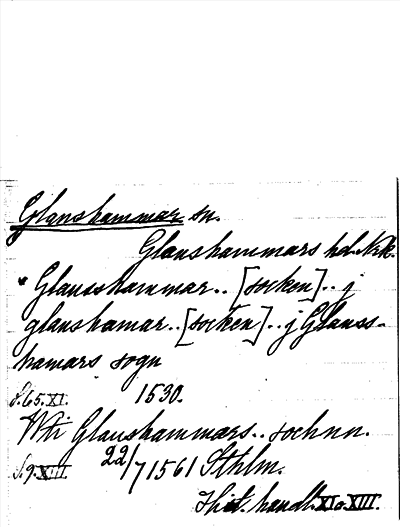 Glanshammar sn.
Glanshammars hd. Nrk.
"Glansshammar.. [socken].. j
glanshamar.. [socken].. j Glanss-
hamars sogn
S. 65. XI. 1530.
Wti Glanshammars.. sochnn.
S. 9. XIII 22/7 1561 Sthlm.
Hist. handl. XI o. XIII.